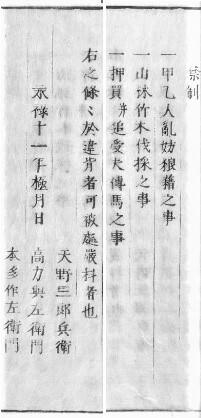 禁制
一甲乙人亂妨狼藉之事
一山林竹木伐採之事
一押買幷追立夫傳馬之事
右之條〻於違背者可被處嚴科者也
永祿十一年極月日
天野三郎兵衛
高力與左衛門
本多作左衛門